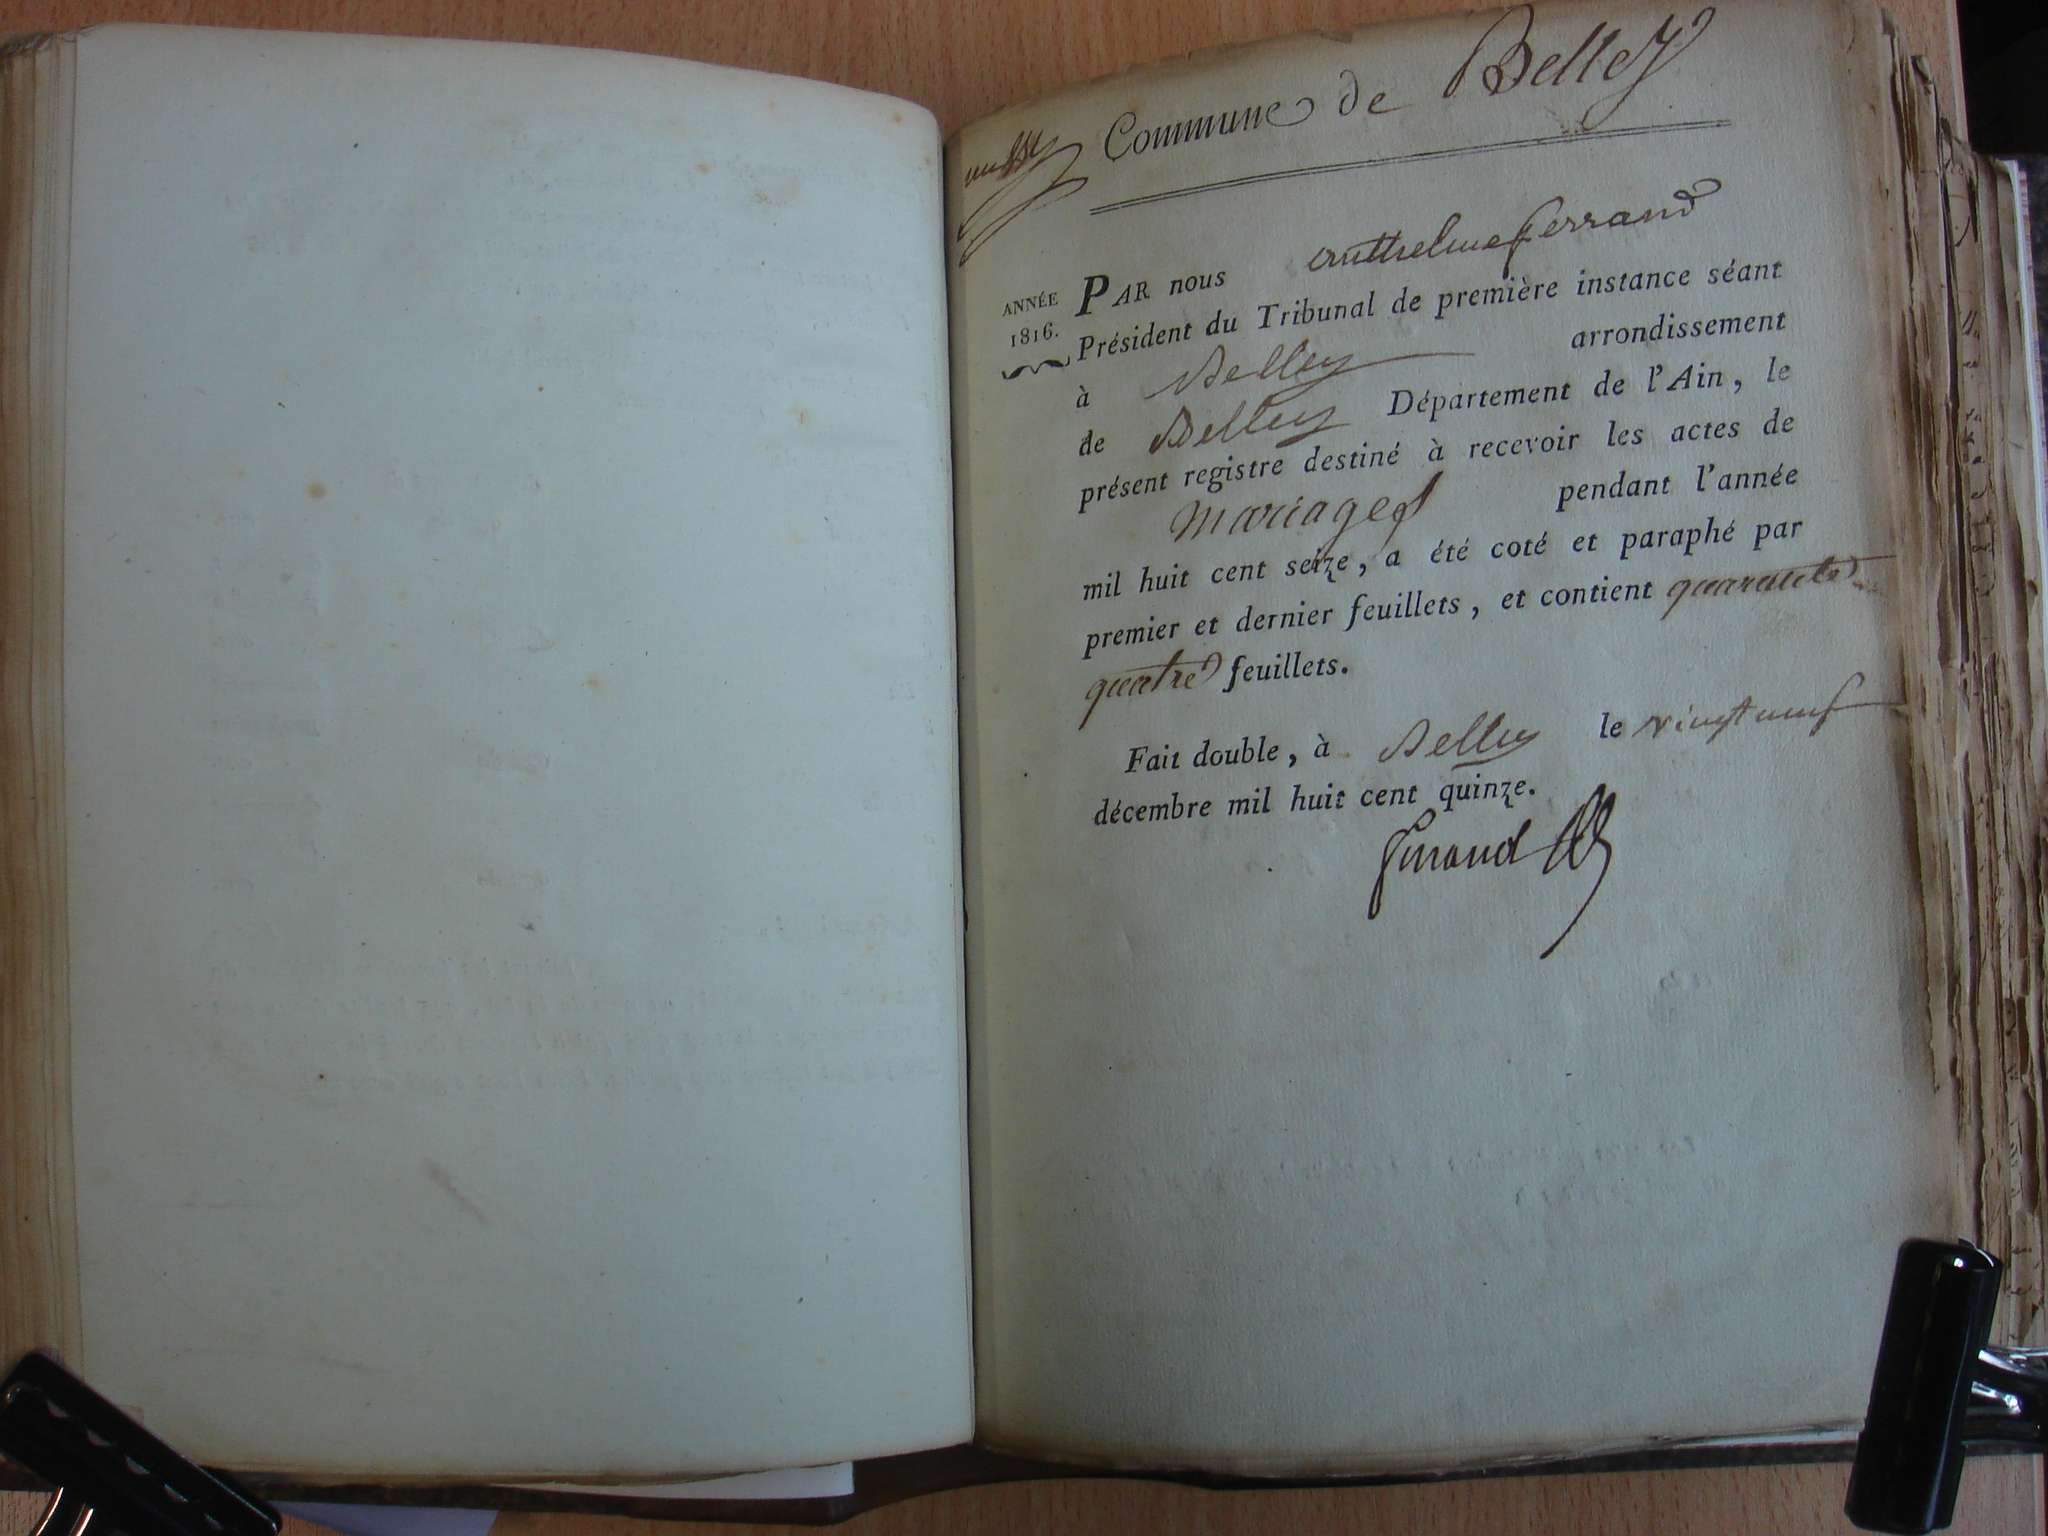 Commune de Belley
ANNÉE
1816.
PAR nous anthelme ferrand
Président du Tribunal de première instance séant
à Belley arrondissement
de Belley Département de l'Ain, le
présent registre destiné à recevoir les actes de
mariages pendant l'année
mil huit cent seize, a été coté et paraphé par
premier et dernier feuillets, et contient quarante
quatre feuillets.
Fait double, à Belley le vingt neuf
décembre mil huit cent quinze.